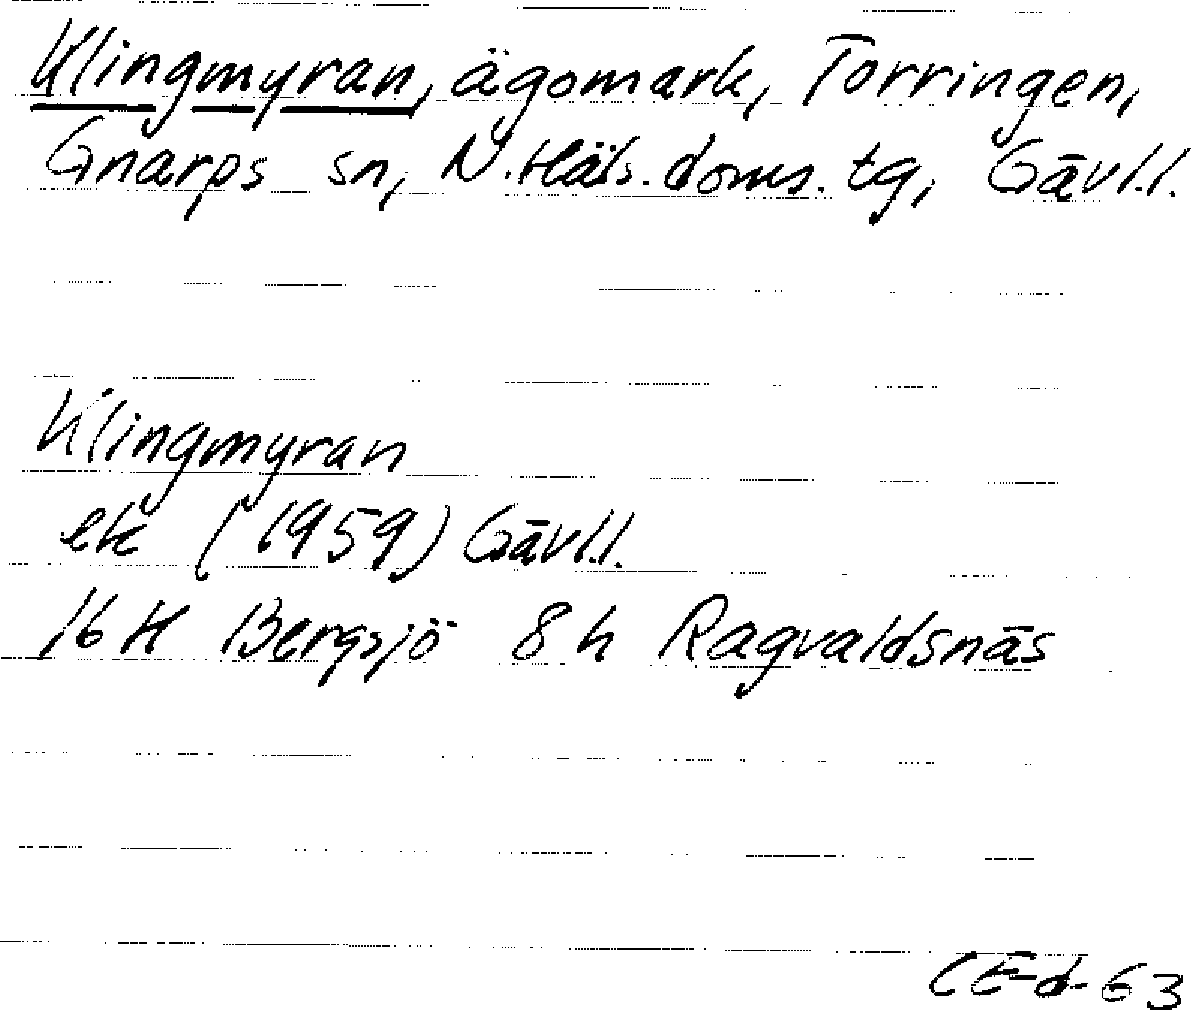 Klingmyran, ägomark, Torringen,
Gnarps sn, N. Häls. doms. tg, Gävl.l.
Klingmyran
ek (1959) Gävl.l.
16 H Bergsjö 8 h Ragvaldsnäs
CE-d-63